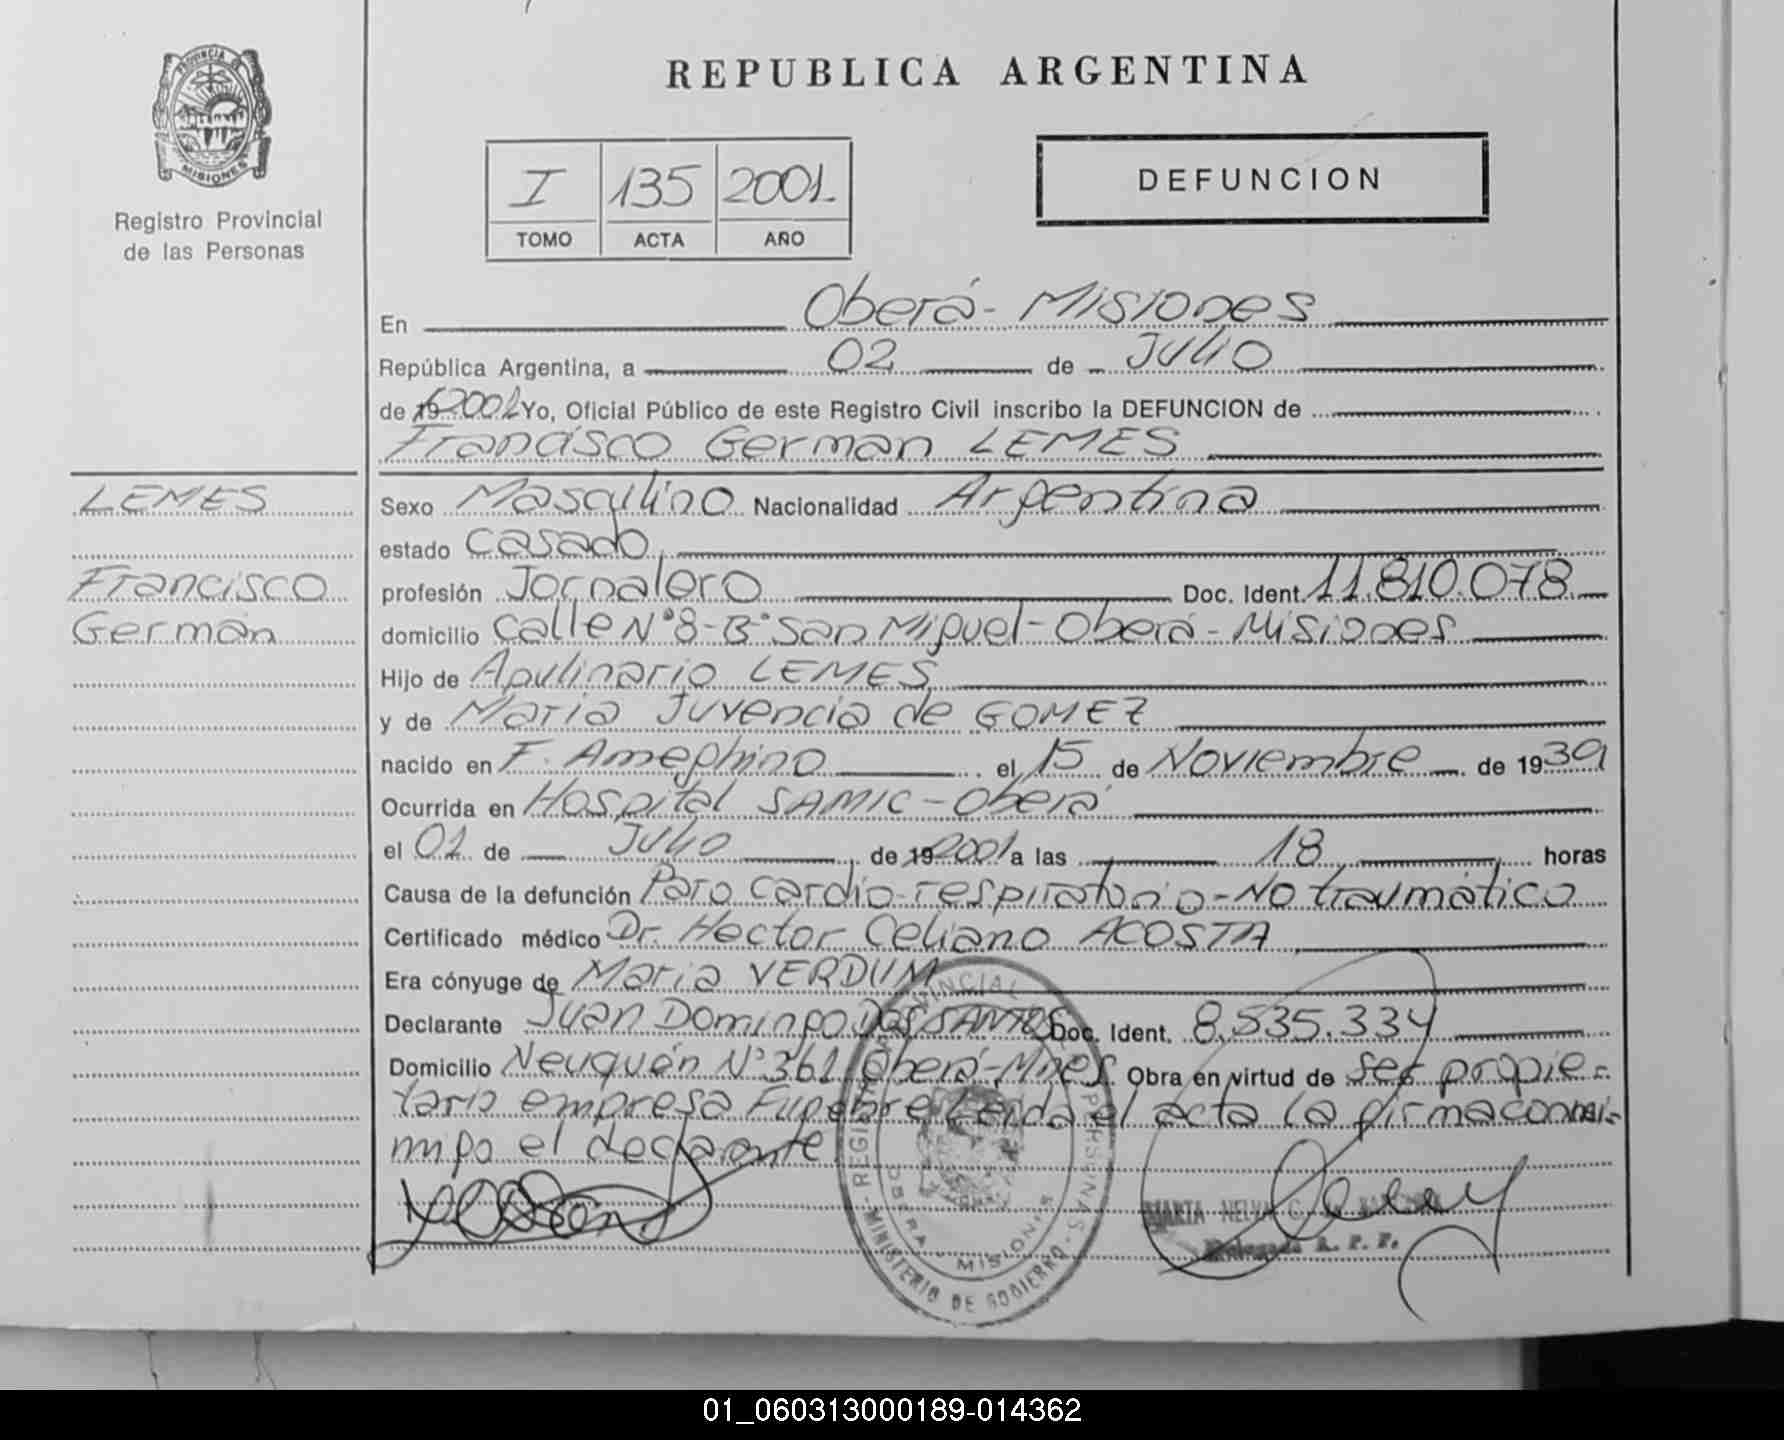 PROVINCIA DE
MISIONES
Registro Provincial
de las Personas
REPUBLICA ARGENTINA
I 135 2001.
TOMO ACTA AÑO
DEFUNCION
En Oberá - Misiones
República Argentina, a 02 de Julio
de 19 2001 Yo, Oficial Público de este Registro Civil inscribo la DEFUNCION de
Francisco German LEMES
LEMES
Francisco
Germán
Sexo Masculino Nacionalidad Argentina
estado casado
profesión Jornalero Doc. Ident. 11.810.078
domicilio calle N° 8 - B° San Miguel - Oberá - Misiones
Hijo de Apulinario LEMES
y de María Juvencia de GOMEZ
nacido en F. Ameghino el 15 de Noviembre de 1939
Ocurrida en Hospital SAMIC - Oberá
el 01 de Julio de 19 2001 a las 18 horas
Causa de la defunción Paro cardio-respiratorio - No traumático
Certificado médico Dr. Hector Celiano ACOSTA
Era cónyuge de Maria VERDUM
Declarante Juan Domingo DOS SANTOS Doc. Ident. 8.535.334
Domicilio Neuquén N° 361 Oberá - Mnes Obra en virtud de ser propie-
tario empresa Funebre Leida el acta la firma conmi-
migo el declarante
OBERA - MISIONES
MINISTERIO DE GOBIERNO
MARTA NELVA
Delegada R. P. P.
01_060313000189-014362